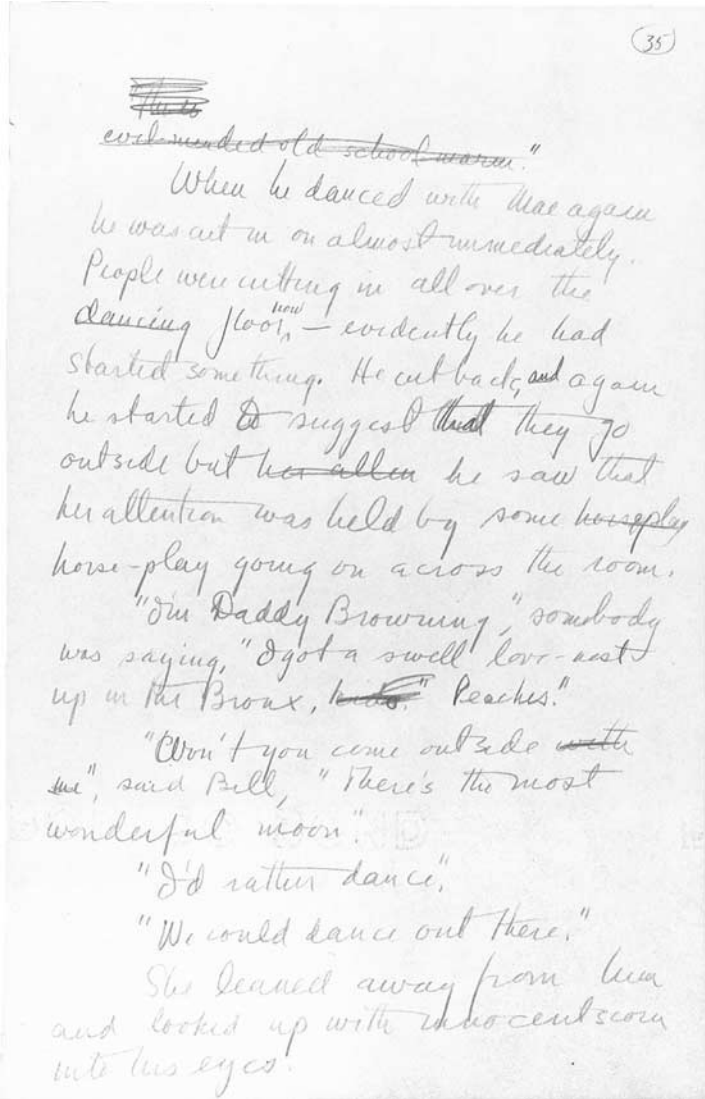 35
evil-minded old school-marm."
When he danced with Mae again
he was cut in on almost immediately.
People were cutting in all over the
dancing floor, now — evidently he had
started something. He cut back, and again
he started to suggest that they go
outside but he saw that
her attention was held by some horseplay
horse-play going on across the room.
"I'm Daddy Browning," somebody
was saying, "I got a swell love-nest
up in the Bronx, Peaches."
"Won't you come outside with
me", said Bill, "There's the most
wonderful moon".
"I'd rather dance".
"We could dance out there."
She leaned away from him
and looked up with innocent scorn
into his eyes.